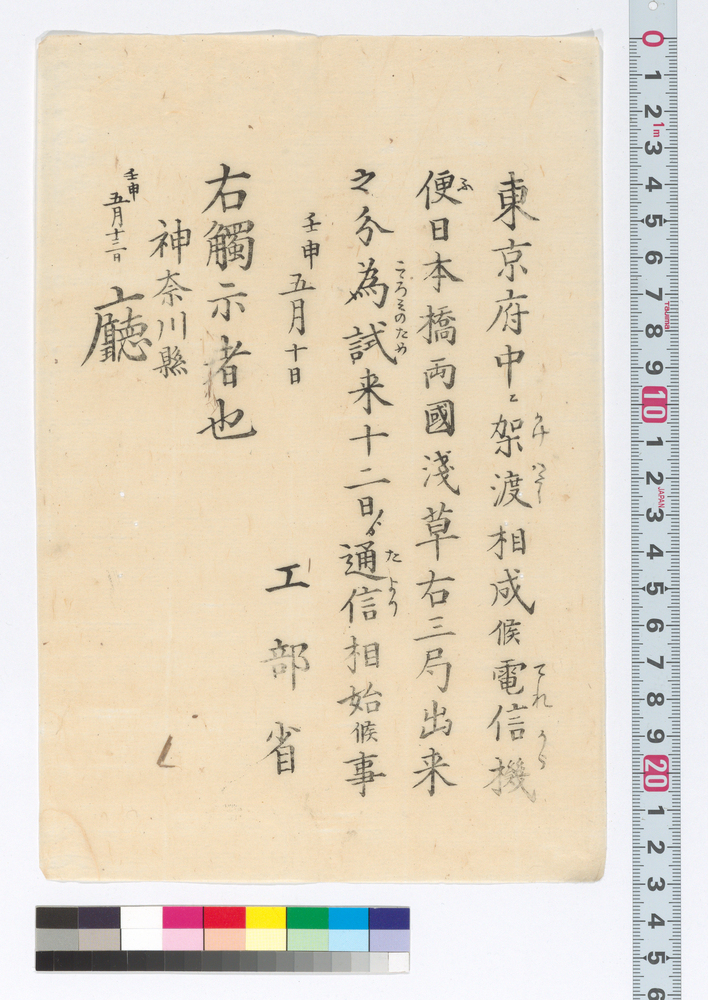 東京府中ニ架渡相成候電信機
てれから
便日本橋両國淺草右三局出来
ふ
之分為試来十二日ゟ通信相始候事
こゝろみのため
たより
壬申五月十日
工部省
右觸示者也
神奈川縣
廳
壬申
五月十三日
0
1
2
1m
3
4
5
6
7
8
9
10
1
2
JAPAN
3
4
5
6
7
8
9
20
1
2
3
4
5
6